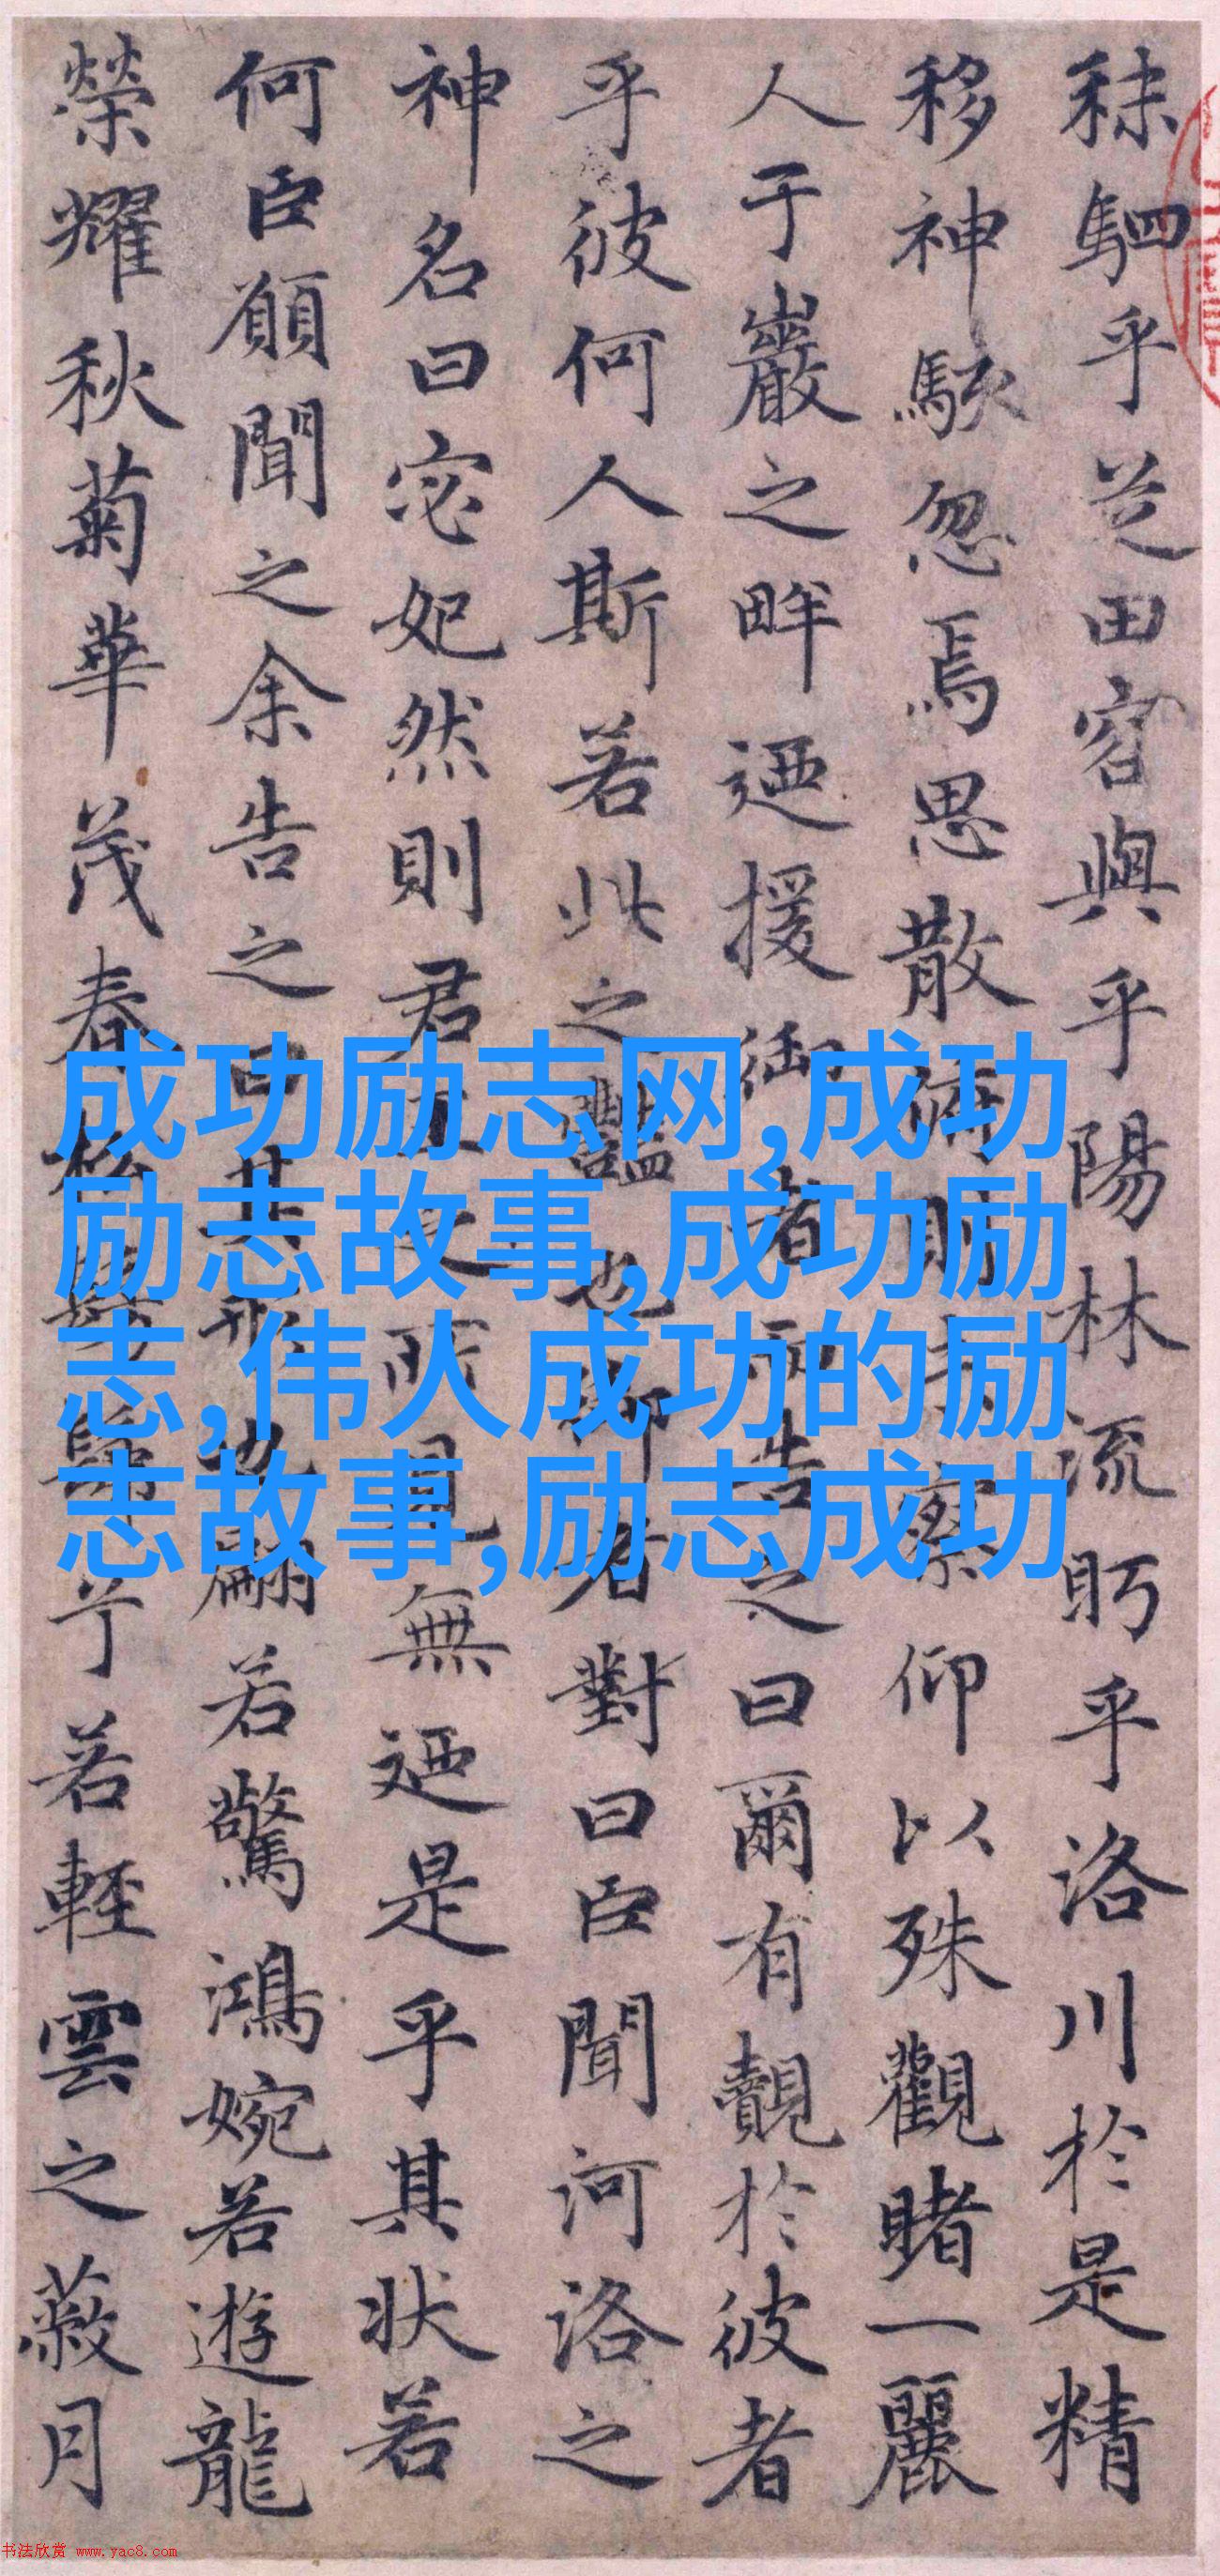 秣駟乎芝田容與乎陽林流眄乎洛川於是精
移神駭忽焉思散俯則未察仰以殊觀睹一麗
人于巖之畔迺援御者而告之曰爾有覿於彼者
乎彼何人斯若此之豔也御者對曰臣聞河洛之
神名曰宓妃然則君王之所見無迺是乎其狀若
何臣願聞之余告之曰其形也翩若驚鴻婉若遊龍
榮耀秋菊華茂春松髣髴兮若輕雲之蔽月
成功励志网,成功
励志故事,成功励
志,伟人成功的励
志故事,励志成功
书法欣赏 www.yac8.com